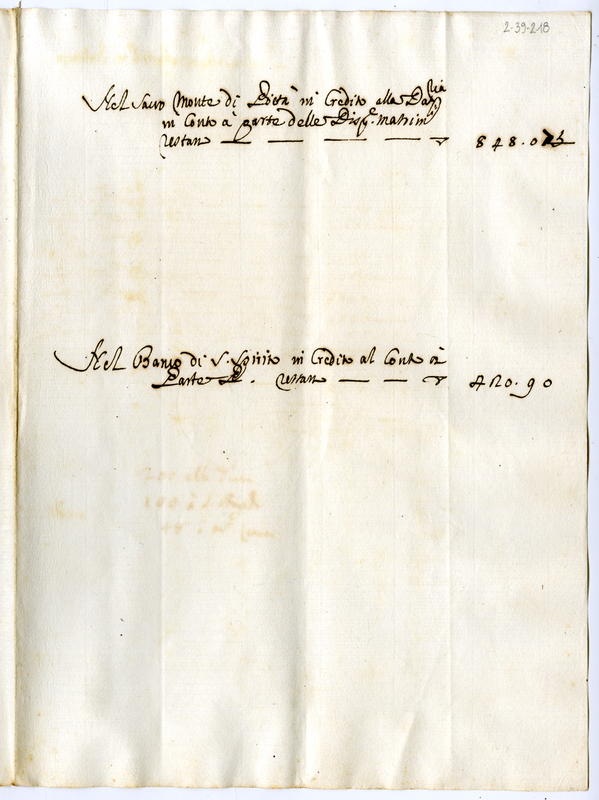 2-39-218
Nel Sacro Monte di Pietà in Credito alla Da.ria
in Conto à parte delle Disp.e Matrim.li
restan — — — — 848.07½
Nel Banco di S. Spirito in Credito al Conto à
Parte Sud.o restan — — 420.90